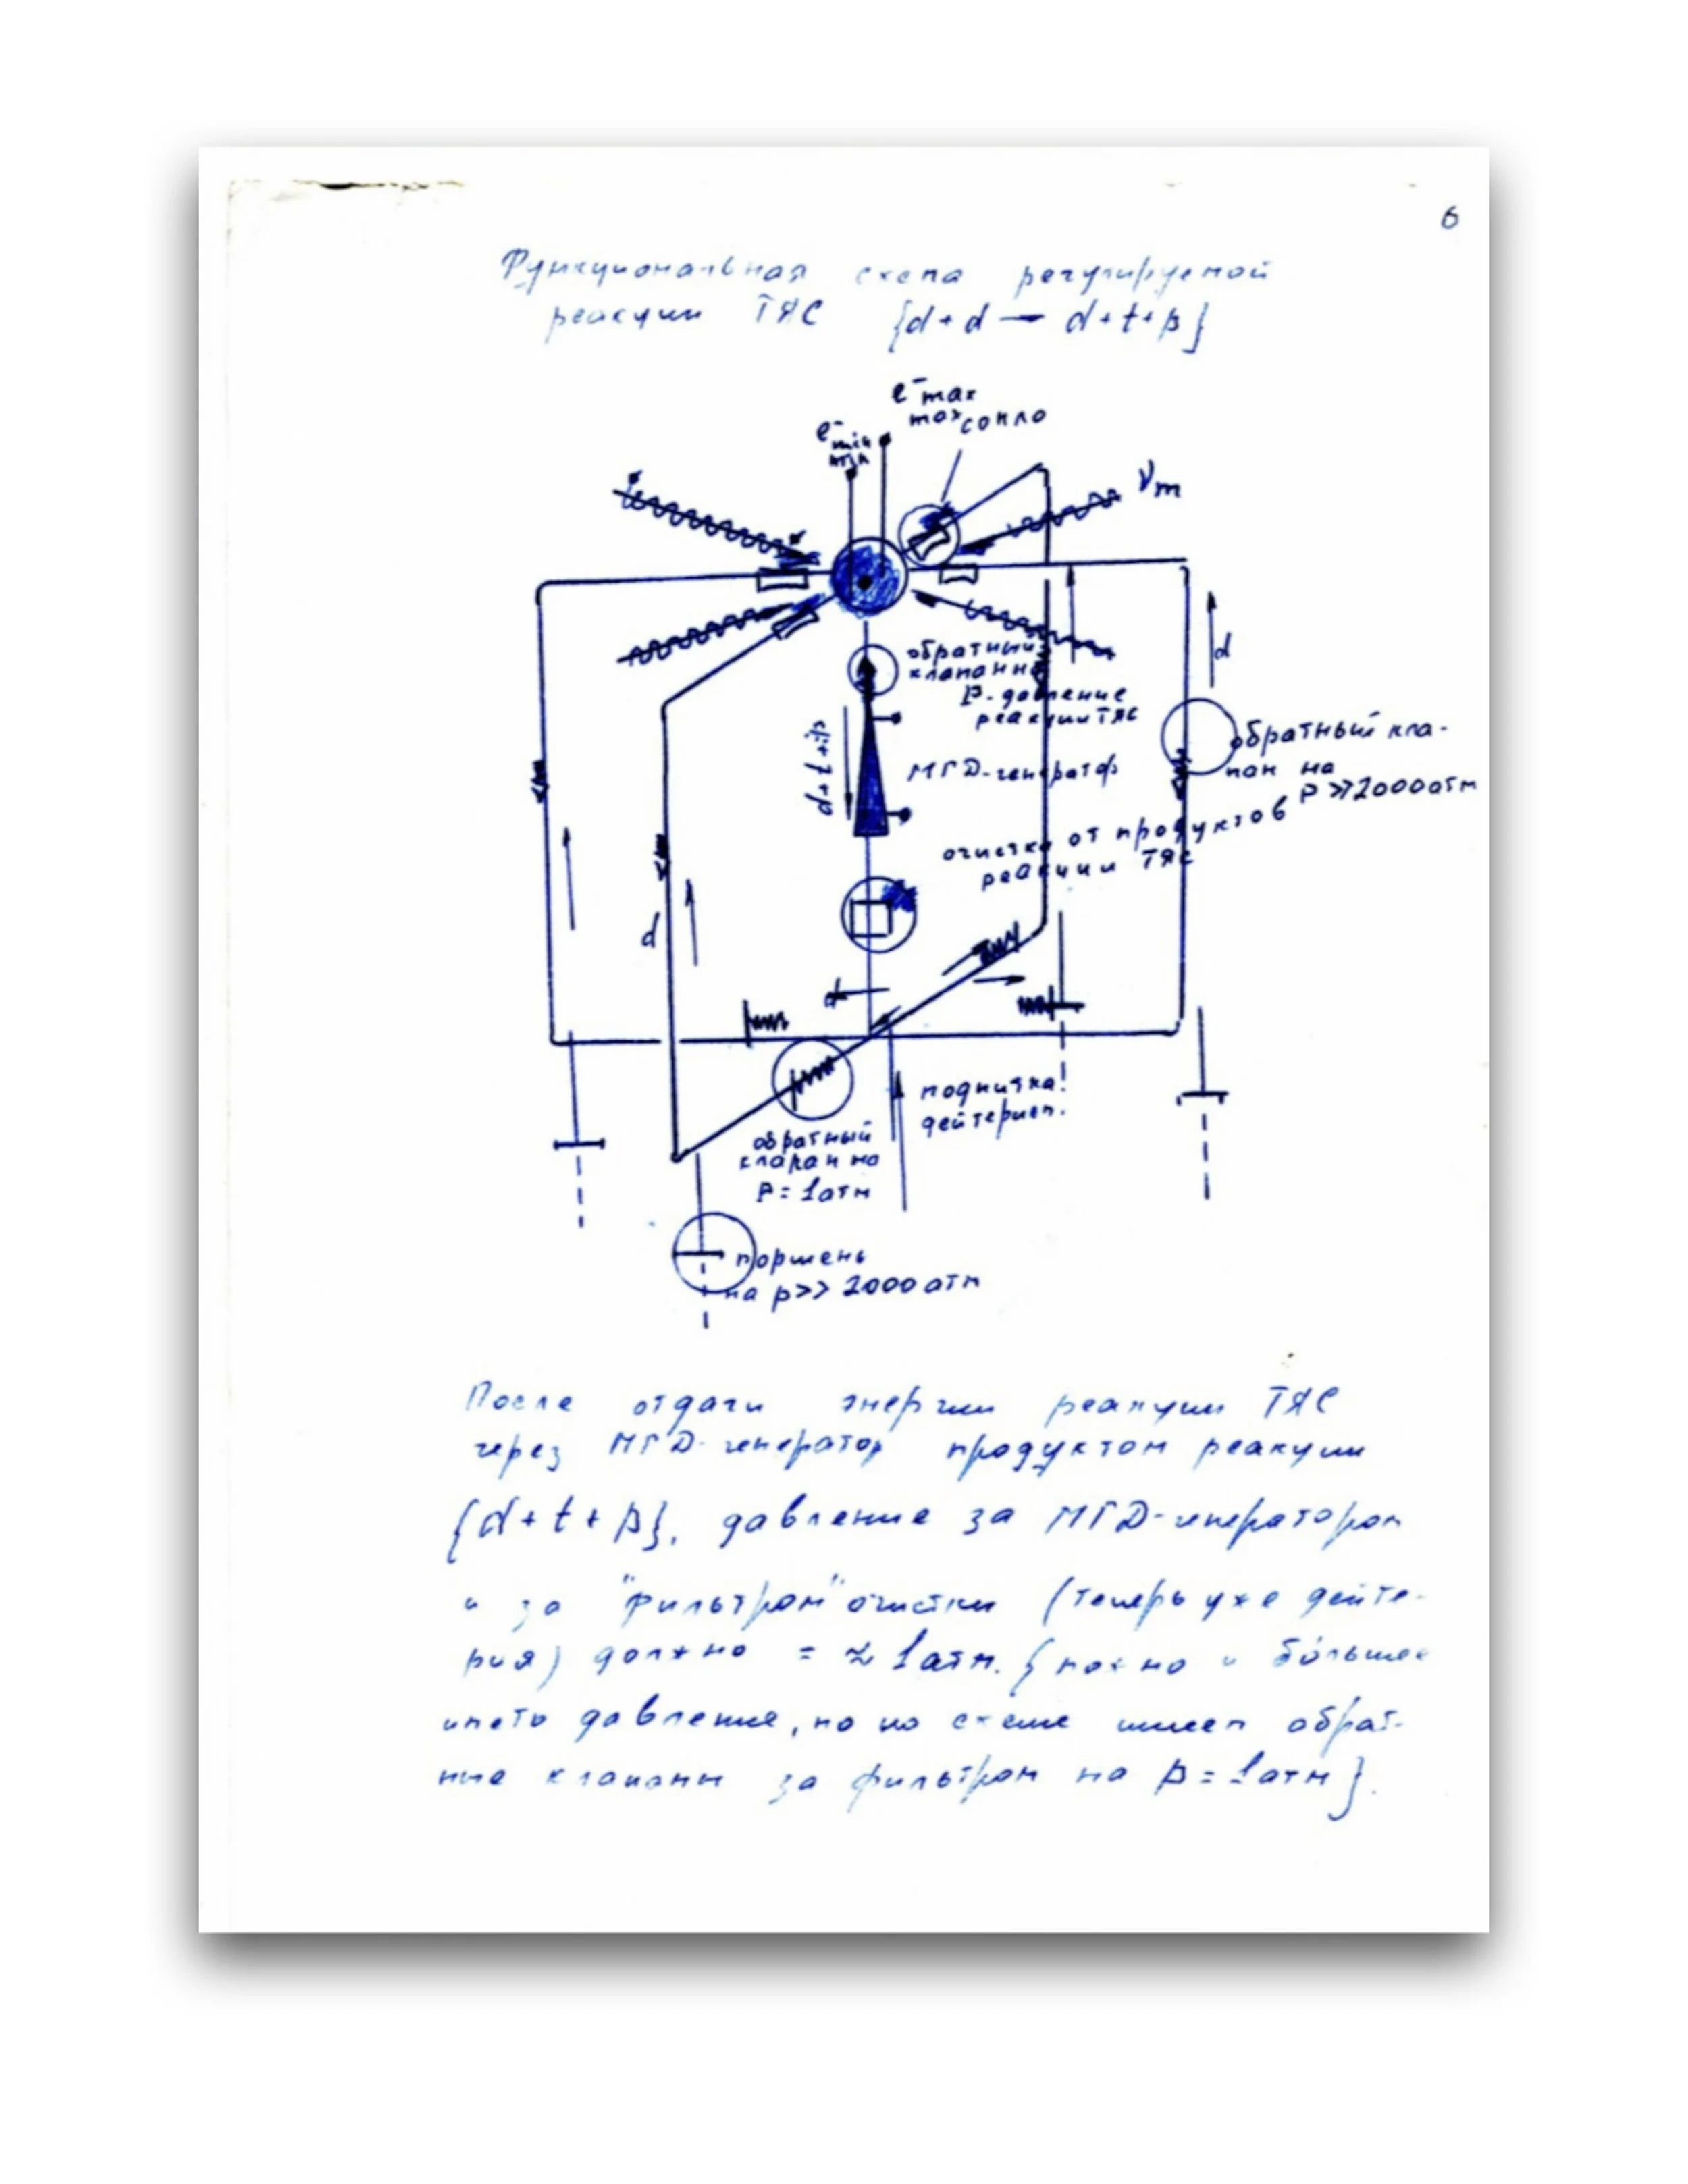 6
Функциональная схема регулируемой
реакции ТЯС {d + d — d + t + p}
e⁻ max
max сопло
e⁻ min
min
ν m
обратный
клапан на
P-давление
реакции ТЯС
d
d+t+p
МГД-генератор
обратный кла-
пан на
P ≫ 2000 атм
очистка от продуктов
реакции ТЯС
d
d
подпитка!
дейтерием.
обратный
клапан на
P = 1 атм
поршень
на p >> 2000 атм
После отдачи энергии реакции ТЯС
через МГД-генератор продуктом реакции
{d + t + p}, давление за МГД-генератором
и за "фильтром" очистки (теперь уже дейте-
рия) должно = ≈ 1 атм. {можно и бо́льшее
иметь давление, но по схеме имеем обрат-
ные клапаны за фильтром на p = 1 атм}.